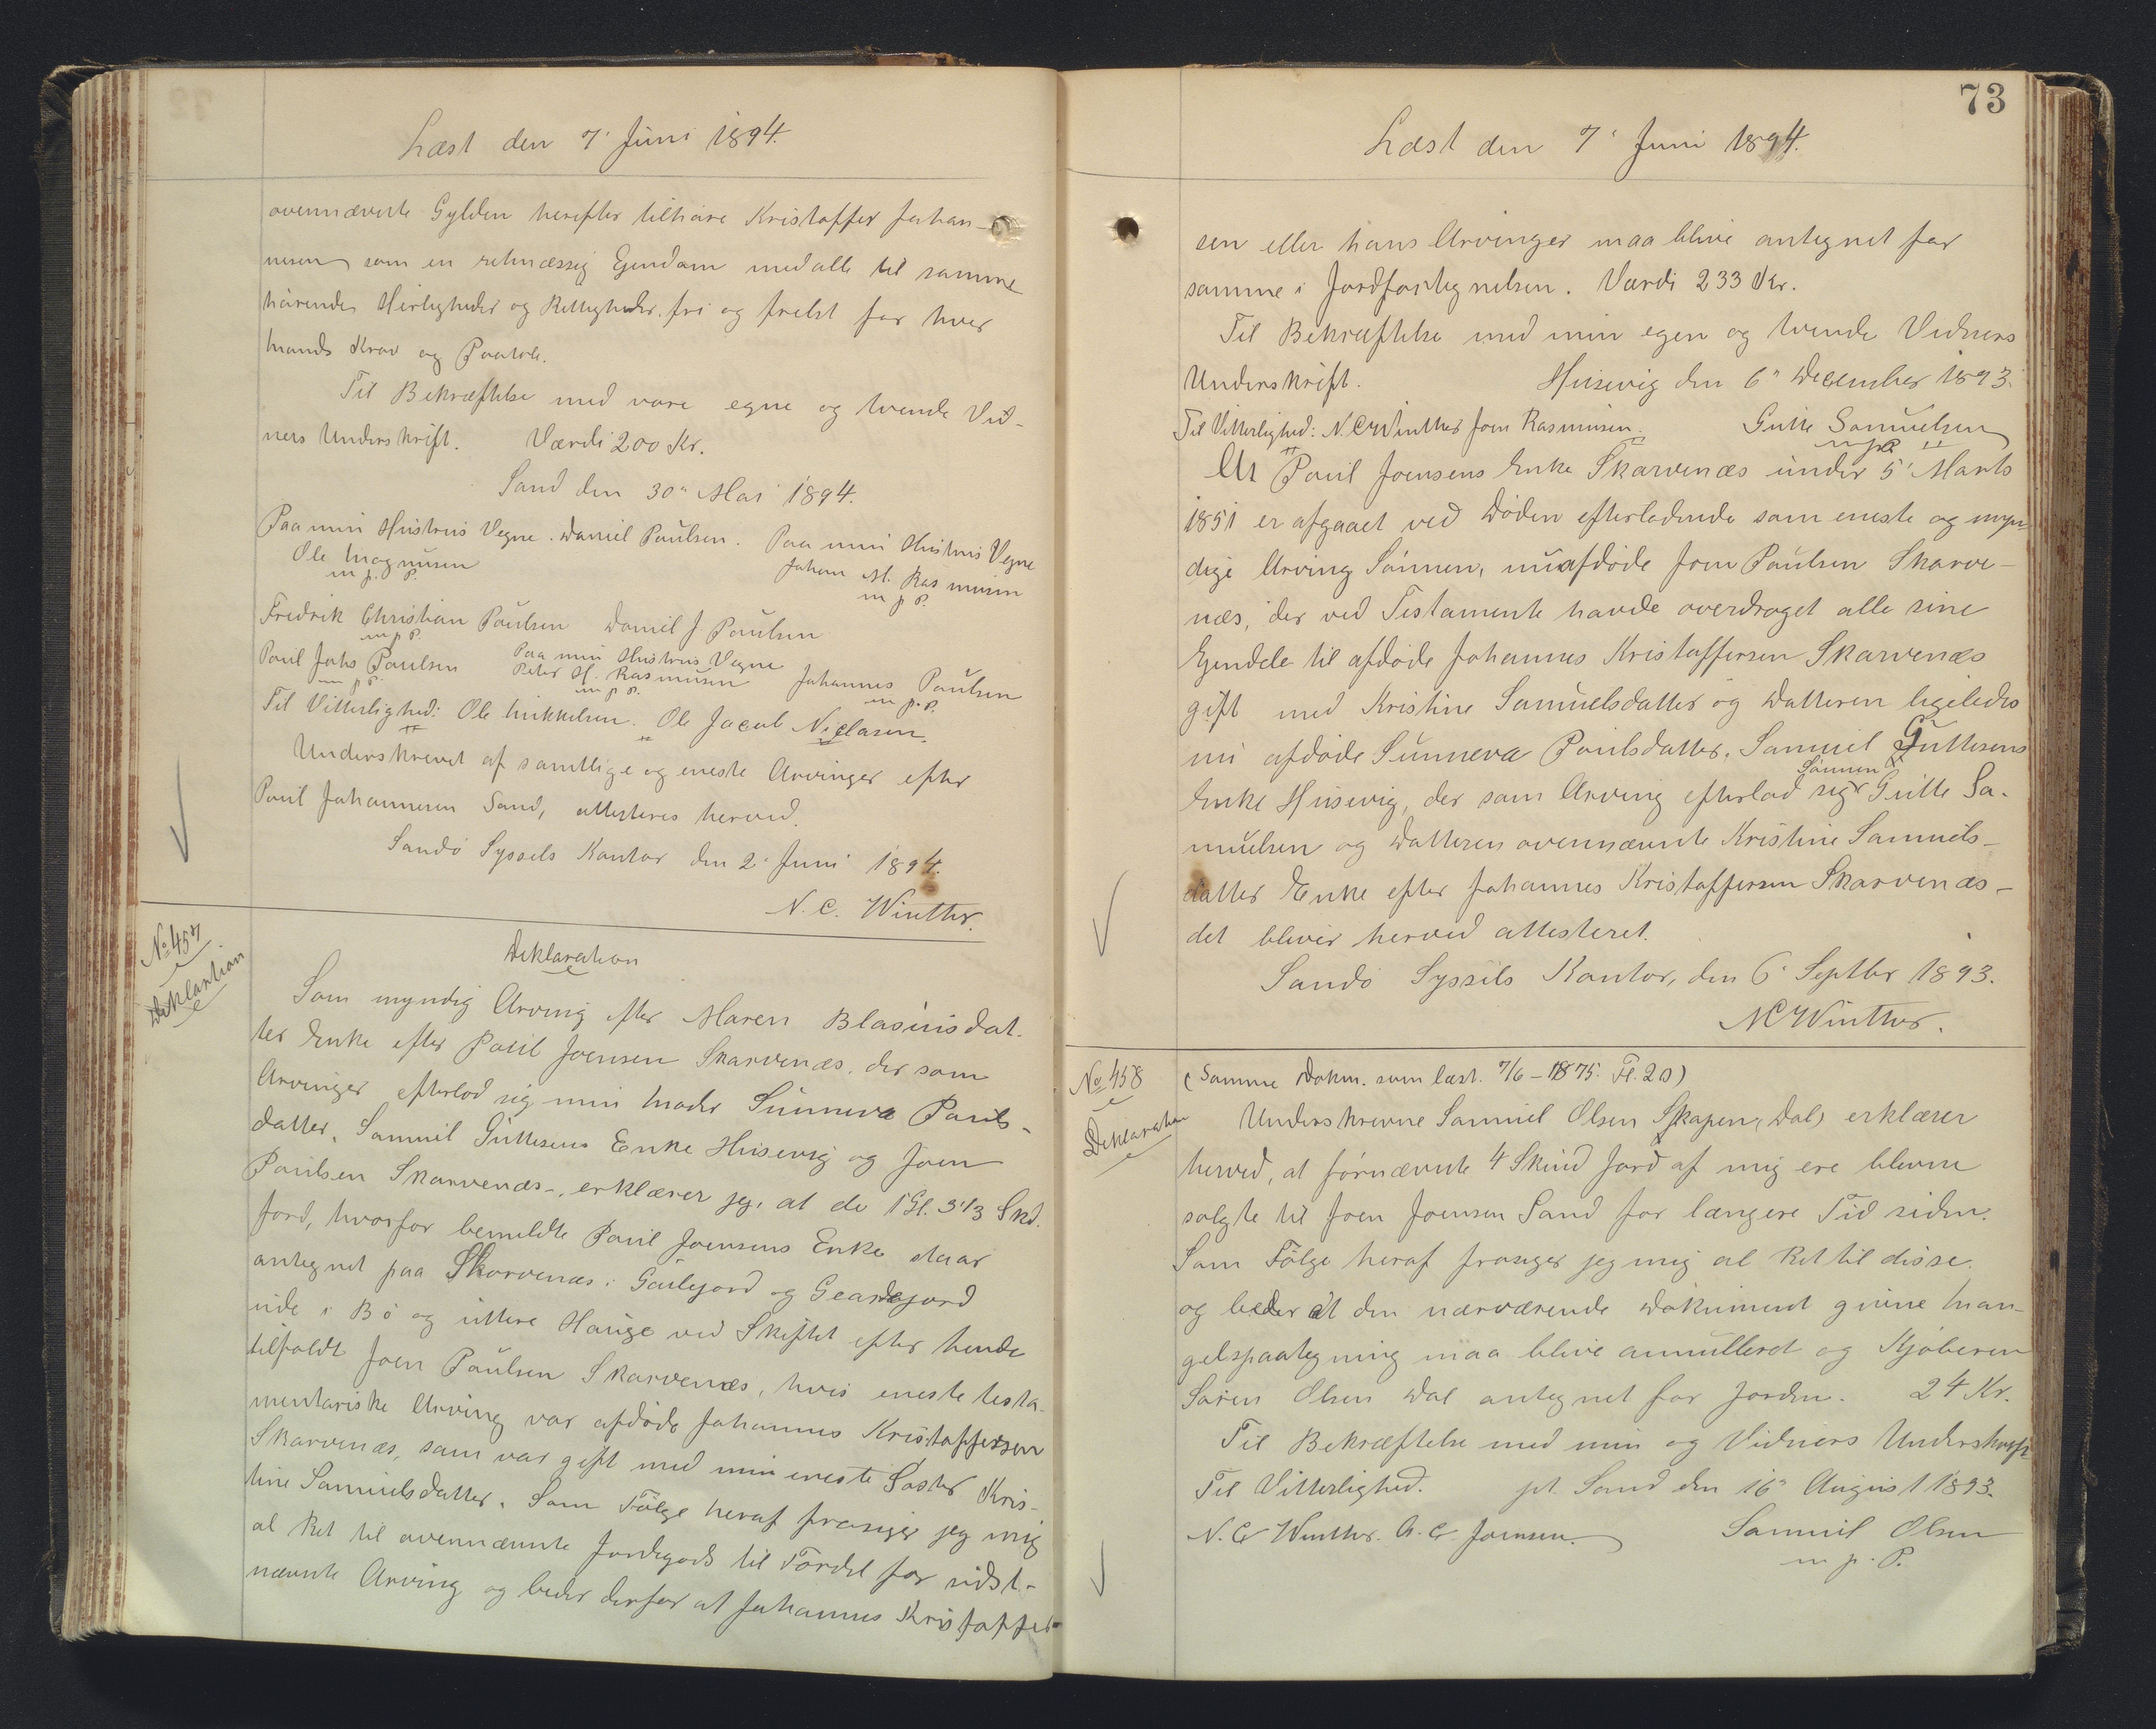 Læst den 7' Juni 1894.
ovennævnte Gylden herefter tilhøre Kristoffer Johan-
nesen som en retmæssig Ejendom med alle til samme
hørende Herligheder og Rettigheder, fri og frelst for hver
Mands Krav og Paatale.
Til Bekræftelse med vore egne og tvende Vid-
ners Underskrift. Værdi 200 Kr.
Sand den 30" Mai 1894.
Paa min Hustrus Vegne. Daniel Paulsen. Paa min Hustrus Vegne
Ole Magnusen Johan M. Rasmusen
m. p. P. m p P.
Fredrik Christian Poulsen Daniel J. Poulsen
m p P.
Poul Johs Poulsen Paa min Hustrus Vegne
Peter H. Rasmusen Johannes Poulsen
m p P. m p P. m. p. P.
Til Vitterlighed: Ole Mikkelsen. Ole Jacob Niclasen.
Underskrevet af samtlige og eneste Arvinger efter
Poul Johannesen Sand, attesteres herved.
Sandø Syssels Kontor den 2' Juni 1894.
N. C. Winther.
No 457
Deklaration
Deklaration
Som myndig Arving efter Maren Blasiusdat-
ter Enke efter Poul Joensen Skarvenæs, der som
Arvinger efterlod sig min Moder Sunneva Pouls-
datter, Samuel Guttesens Enke Husevig og Joen
Poulsen Skarvenæs-, erklærer jeg, at de 1 Gl. 3 1/3 Skd.
Jord, hvorfor bemeldte Poul Joensens Enke staar
antegnet paa Skarvenæs i Goilejord og Geardejord
ude i Bø og uttere Hauge ved Skiftet efter hende
tilfaldt Joen Poulsen Skarvenæs, hvis eneste testa-
mentariske Arving var afdøde Johannes Kristoffersen
Skarvenæs, som var gift med min eneste Søster Kris-
tine Samuelsdatter. Som Følge heraf frasiger jeg mig
al Ret til ovennævnte Jordegods til Fordel for sidst-
nævnte Arving og beder derfor at Johannes Kristoffer-
73
Læst den 7' Juni 1894.
sen eller hans Arvinger maa blive antegnet for
samme i Jordfortegnelsen. Værdi 233 Kr.
Til Bekræftelse med min egen og tvende Vidners
Underskrift. Husevig den 6" December 1893.
Til Vitterlighed: N. C. Winther Joen Rasmusen. Gutte Samuelsen
m p P
At Poul Joensens Enke Skarvenæs under 5' Marts
1851 er afgaaet ved Døden efterladende som eneste og myn-
dige Arving Sønnen, nu afdøde Joen Poulsen Skarve-
næs, der ved Testamente havde overdraget alle sine
Ejendele til afdøde Johannes Kristoffersen Skarvenæs
gift med Kristine Samuelsdatter og Datteren ligeledes
nu afdøde Sunneva Poulsdatter, Samuel Guttesens
Sønnen
Enke Husevig, der som Arving efterlod sig Gutte Sa-
muelsen og Datteren ovennævnte Kristine Samuels-
datter Enke efter Johannes Kristoffersen Skarvenæs-
det bliver herved attesteret.
Sandø Syssels Kontor, den 6' Septbr 1893.
NCWinther.
No 458
Deklaration
(Samme Dokm. som læst. 7/6 - 1875. Fl. 20)
Underskrevne Samuel Olsen Skapen, Dal, erklærer
herved, at førnævnte 4 Skind Jord af mig ere blevne
solgte til Joen Joensen Sand for længere Tid siden.
Som Følge heraf frasiger jeg mig al Ret til disse
og beder at den nærværende Dokument givne Man-
gelspaategning maa blive annulleret og Kjøberen
Søren Olsen Dal antegnet for Jorden. 24 Kr.
Til Bekræftelse med min og Vidners Underskrift
Til Vitterlighed. pt. Sand den 16" August 1893.
N. C. Winther. A. C. Joensen. Samuel Olsen
m. p. P.